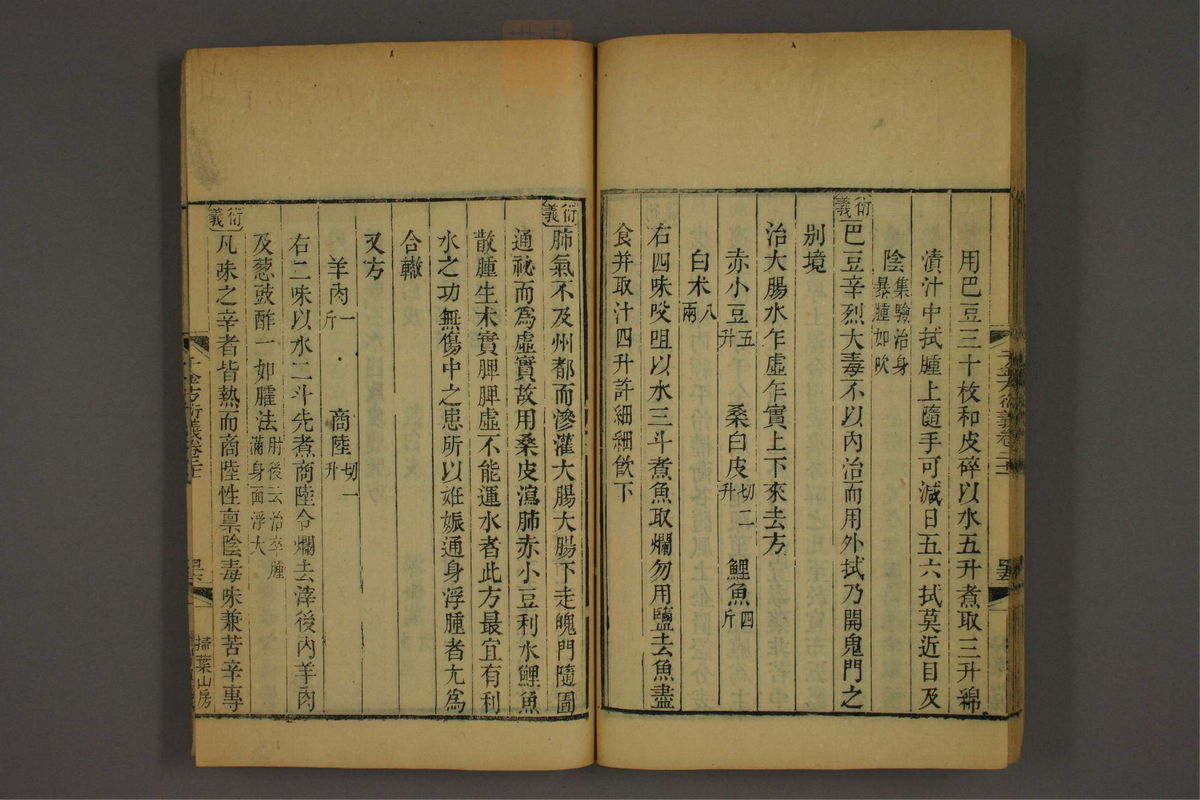 用巴豆三十枚和皮碎以水五升煮取三升綿
漬汁中拭腫上隨手可減日五六拭莫近目及
陰集驗治身暴腫如吹
衍義巴豆辛烈大毒不以內治而用外拭乃開鬼門之
別境
治大腸水乍虛乍實上下來去方
赤小豆五升 桑白皮切二升 鯉魚四斤
白朮八兩
右四味㕮咀以水三斗煮魚取爛勿用鹽去魚盡
食并取汁四升許細細飲下
千金方衍義卷二十一
衍義肺氣不及州都而滲灌大腸大腸下走魄門隨圊
通祕而為虛實故用桑皮瀉肺赤小豆利水鯉魚
散腫生朮實脾脾虛不能運水者此方最宜有利
水之功無傷中之患所以姙娠通身浮腫者尤為
合轍
又方
羊肉一斤 商陸切一升
右二味以水二斗先煮商陸令爛去滓後內羊肉
及葱豉酢一如臛法肘後云治卒腫滿身面浮大
衍義凡味之辛者皆熱而商陸性稟陰毒味兼苦辛專
千金方衍義卷二十一
掃葉山房